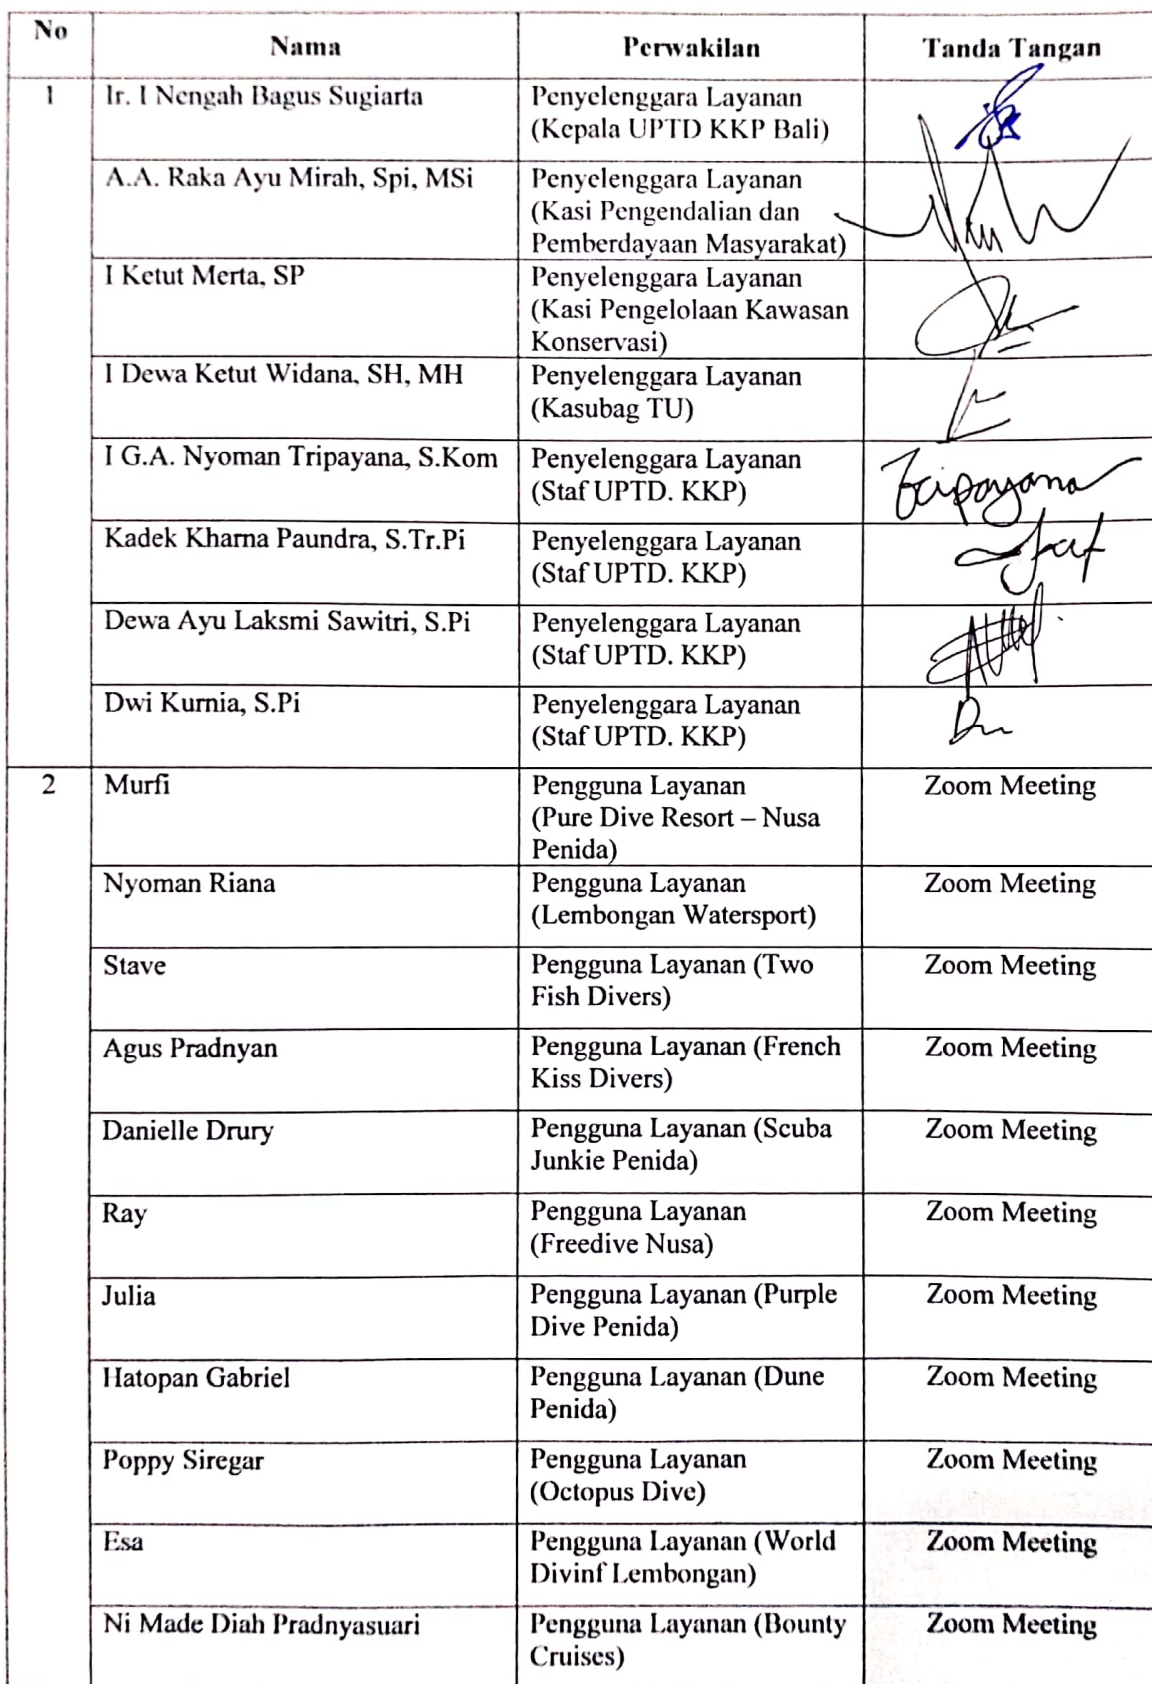 No Nama Perwakilan Tanda Tangan
1 Ir. I Nengah Bagus Sugiarta Penyelenggara Layanan
(Kepala UPTD KKP Bali)
A.A. Raka Ayu Mirah, Spi, MSi Penyelenggara Layanan
(Kasi Pengendalian dan
Pemberdayaan Masyarakat)
I Ketut Merta, SP Penyelenggara Layanan
(Kasi Pengelolaan Kawasan
Konservasi)
I Dewa Ketut Widana, SH, MH Penyelenggara Layanan
(Kasubag TU)
I G.A. Nyoman Tripayana, S.Kom Penyelenggara Layanan
(Staf UPTD. KKP) Tripayana
Kadek Kharna Paundra, S.Tr.Pi Penyelenggara Layanan
(Staf UPTD. KKP)
Dewa Ayu Laksmi Sawitri, S.Pi Penyelenggara Layanan
(Staf UPTD. KKP)
Dwi Kurnia, S.Pi Penyelenggara Layanan
(Staf UPTD. KKP)
2 Murfi Pengguna Layanan Zoom Meeting
(Pure Dive Resort – Nusa
Penida)
Nyoman Riana Pengguna Layanan Zoom Meeting
(Lembongan Watersport)
Stave Pengguna Layanan (Two Zoom Meeting
Fish Divers)
Agus Pradnyan Pengguna Layanan (French Zoom Meeting
Kiss Divers)
Danielle Drury Pengguna Layanan (Scuba Zoom Meeting
Junkie Penida)
Ray Pengguna Layanan Zoom Meeting
(Freedive Nusa)
Julia Pengguna Layanan (Purple Zoom Meeting
Dive Penida)
Hatopan Gabriel Pengguna Layanan (Dune Zoom Meeting
Penida)
Poppy Siregar Pengguna Layanan Zoom Meeting
(Octopus Dive)
Esa Pengguna Layanan (World Zoom Meeting
Divinf Lembongan)
Ni Made Diah Pradnyasuari Pengguna Layanan (Bounty Zoom Meeting
Cruises)